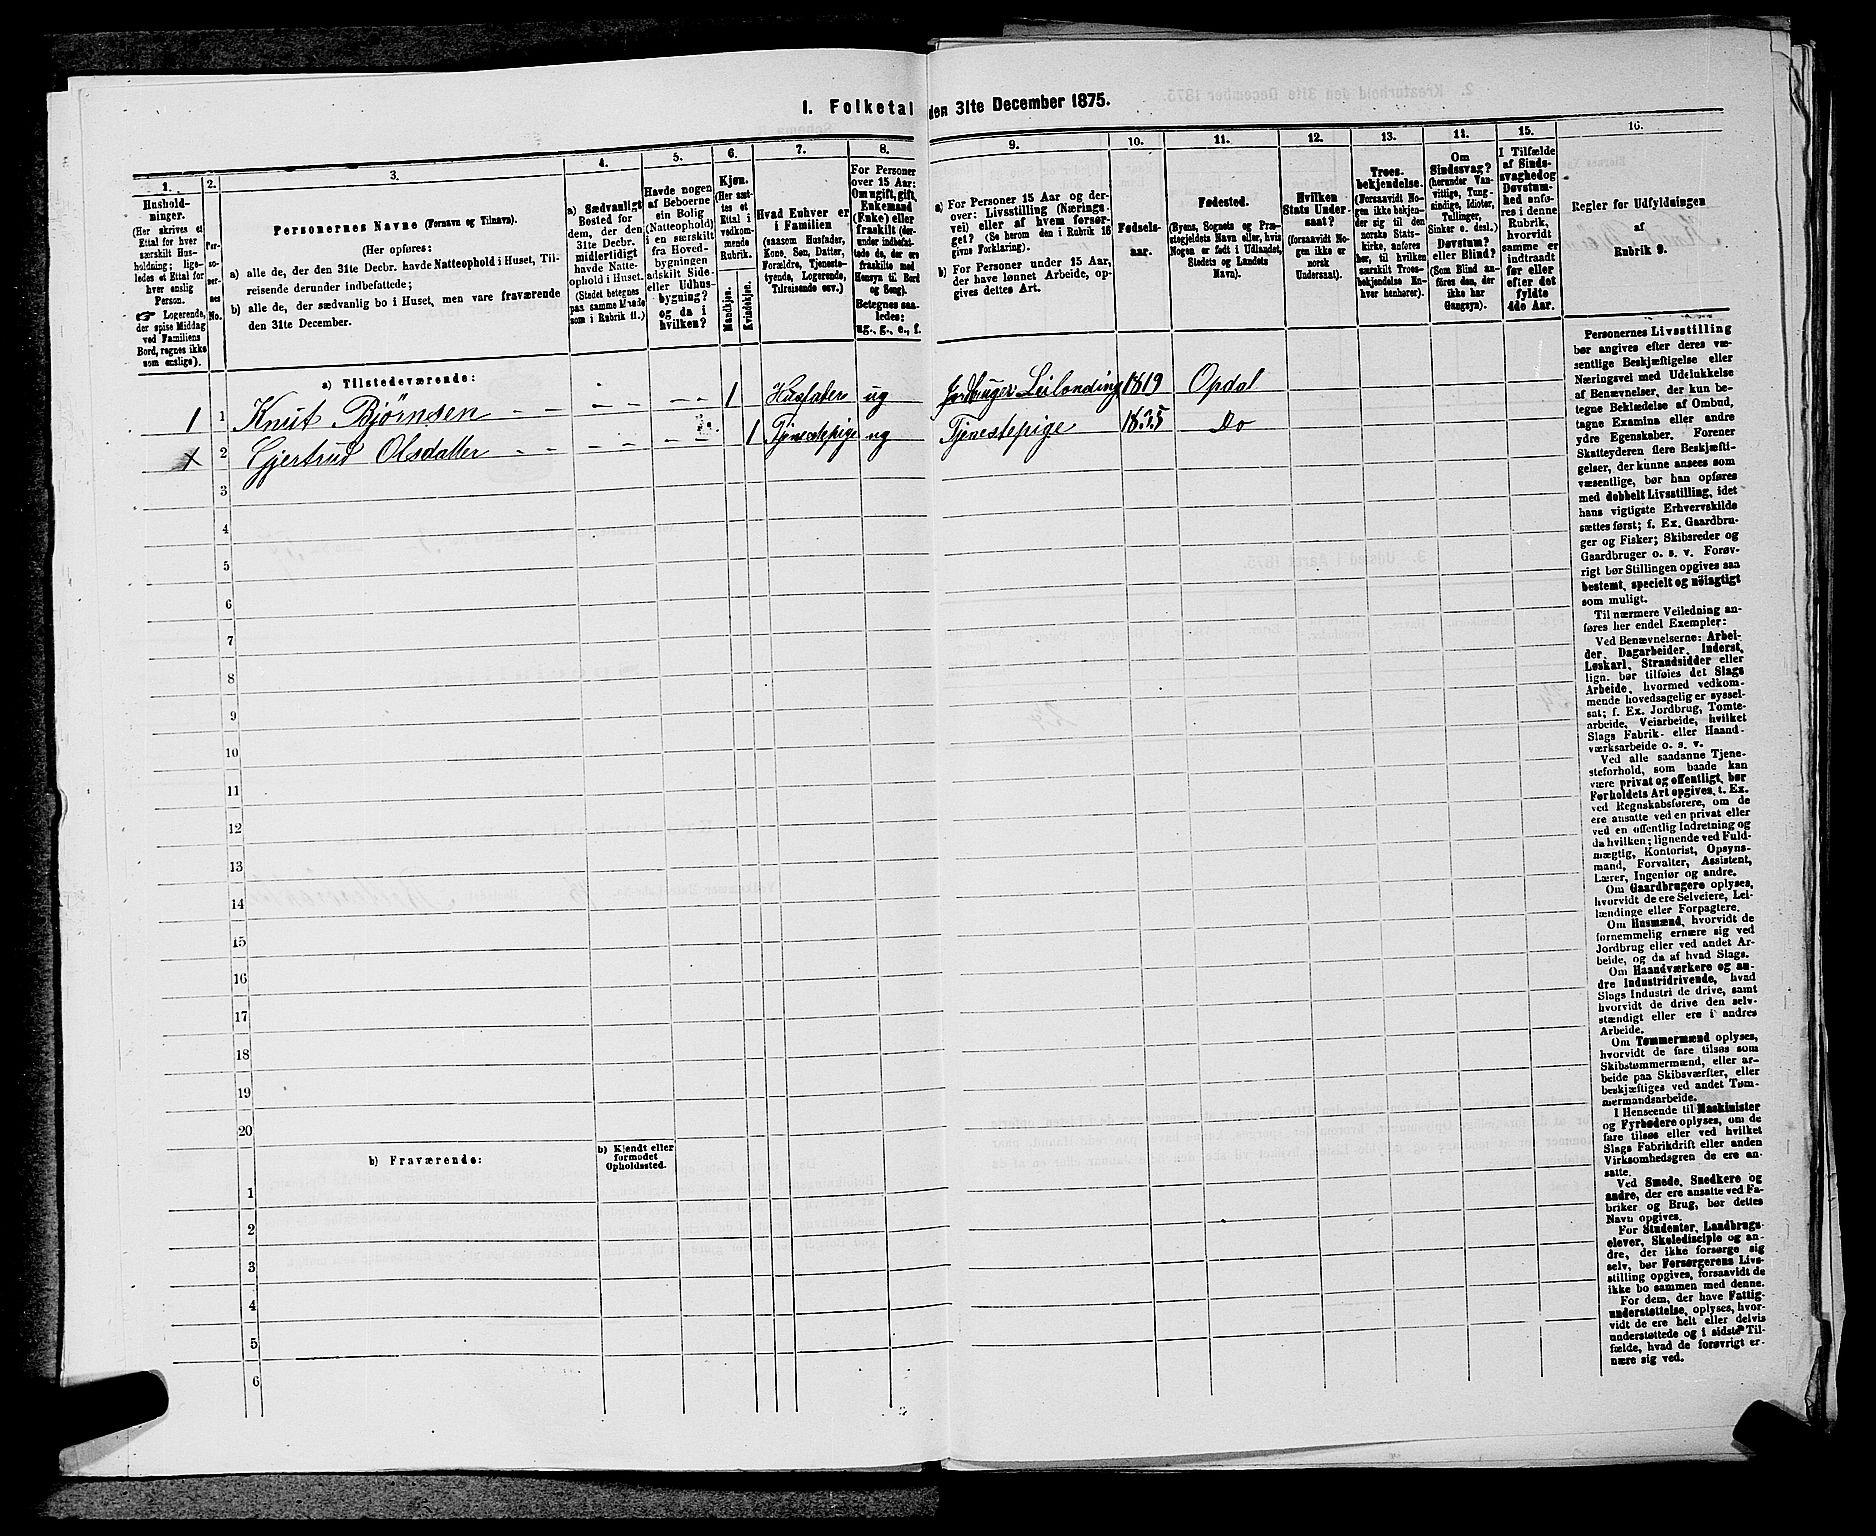 I. Folketal den 31te December 1875.
1.
Hushold-
ninger.
(Her skrives et
Ettal for hver
særskilt Hus-
holdning; lige-
ledes et Ettal for
hver enslig
Person.
☞ Logerende,
der spise Middag
ved Familiens
Bord, regnes ikke
som enslige).
2.
Per-
so-
ner-
nes
No.
3.
Personernes Navne (Fornavn og Tilnavn).
(Her opføres:
a) alle de, der den 31te Decbr. havde Natteophold i Huset, Til-
reisende derunder indbefattede;
b) alle de, der sædvanlig bo i Huset, men vare fraværende
den 31te December.
4.
a) Sædvanligt
Bosted for
dem, der den
31te Decbr.
midlertidigt
havde Natte-
ophold i Huset.
(Stedet betegnes
paa samme Maade
som i Rubrik 11.)
5.
Havde nogen
af Beboerne
ein Bolig
(Natteophold)
i en særskilt
fra Hoved-
bygningen
adskilt Side-
eller Udhus-
bygning?
og da i
hvilken?
6.
Kjøn.
(Her sæt-
tes et
Ettal i
vedkom-
mende
Rubrik.
Mandkjøn.
Kvindekjøn.
7.
Hvad Enhver er
i Familien
(saasom Husfader,
Kone, Søn, Datter,
Forældre, Tjeneste-
tyende, Logerende,
Tilreisende osv.)
8.
For Personer
over 15 Aar:
Om ugift, gift,
Enkemand
(Enke) eller
fraskilt (der-
under indbefat-
tede de, der
ere fraskilte med
Hensyn til Bord
og Seng).
Betegnes saa-
ledes:
ug., g., e., f.
9.
a) For Personer 15 Aar og der-
over: Livsstilling (Nærings-
vei) eller af hvem forsør-
get? (Se herom den i Rubrik 16
givne Forklaring).
b) For Personer under 15 Aar,
der have lønnet Arbeide, op-
gives dettes Art.
10.
Fødsels-
aar.
11.
Fødested.
(Byens, Sognets og Præ-
stegjeldets Navn eller, hvis
Nogen er født i Udlandet,
Stedets og Landets
Navn).
12.
Hvilken
Stats Under-
saat?
(forsaavidt No-
gen ikke er
norsk
Undersaat).
13.
Troes-
bekjendelse.
(Forsaavidt No-
gen ikke bekjen-
der sig til den
norske Stats-
kirke, anføres
her, til hvilken
særskilt Troes-
bekjendelse En-
hver henhører).
14.
Om
Sindssvag?
(herunder Van-
vittige, Tung-
sindige, Idioter,
Tullinger,
Sinker o. desl.)
Døvstum?
eller Blind?
(Som Blind an-
føres den, der
ikke har
Gangsyn).
15.
I Tilfælde
af Sinds-
svaghed og
Døvstum-
hed anfø-
res i denne
Rubrik,
hvorvidt
samme er
indtraadt
før eller
efter det
fyldte
4de Aar.
16.
Regler for Udfyldningen
af
Rubrik 9.
a) Tilstedeværende:
1 1 Knut Bjørnsen - - - - - - 1 Husfader ug Jordbruger Leilænding 1819 Opdal
1 2 Gjertrud Olsdatter - - - - - - 1 Tjenestepige ug Tjenestepige 1835 Do
3
4
5
6
7
8
9
10
11
12
13
14
15
16
17
18
19
20
b) Fraværende:
b) Kjendt eller
formodet
Opholdssted.
1
2
3
4
5
6
Personernes Livsstilling
bør angives efter deres væ-
sentlige Beskjæftigelse eller
Næringsvei med Udelukkelse
af Benævnelser, der kun be-
tegne Beklædelse af Ombud,
tagne Examina eller andre
ydre Egenskaber. Forener
Skatteyderen flere Beskjæfti-
gelser, der kunne ansees som
væsentlige, bør han opføres
med dobbelt Livsstilling, idet
hans vigtigste Erhvervskilde
sættes først; f. Ex. Gaardbru-
ger og Fisker; Skibsreder og
Gaardbruger o. s. v. Forøv-
rigt bør Stillingen opgives saa
bestemt, specielt og nøiagtigt
som muligt.
Til nærmere Veiledning an-
føres her endel Exempler:
Ved Benævnelserne: Arbei-
der, Dagarbeider, Inderst,
Løskarl, Strandsidder eller
lign. bør tilføies det Slags
Arbeide, hvormed vedkom-
mende hovedsagelig er syssel-
sat; f. Ex. Jordbrug, Tomte-
arbeide, Veiarbeide, hvilket
Slags Fabrik- eller Haand-
værksarbeide o. s. v.
Ved alle saadanne Tjene-
steforhold, som baade kan
være privat og offentligt, bør
Forholdets Art opgives, t. Ex.
ved Regnskabsførere, om de
ere ansatte ved en privat eller
ved en offentlig Indretning og
da hvilken; lignende ved Fuld-
mægtig, Kontorist, Opsyns-
mand, Forvalter, Assistent,
Lærer, Ingeniør og andre.
Om Gaardbrugere oplyses,
hvorvidt de ere Selveiere, Lei-
lændinge eller Forpagtere.
Om Husmænd, hvorvidt de
fornemmelig ernære sig ved
Jordbrug eller ved andet Ar-
beide, og da af hvad Slags.
Om Haandværkere og an-
dre Industridrivende, hvad
Slags Industri de drive, samt
hvorvidt de drive den selv-
stændigt eller ere i andres
Arbeide.
Om Tømmermænd oplyses,
hvorvidt de fare tilsøs som
Skibstømmermænd, eller ar-
beide paa Skibsværfter, eller
beskjæftiges ved andet Tøm-
mermandsarbeide.
I Henseende til Maskinister
og Fyrbødere oplyses, om de
fare tilsøs eller ved hvilket
Slags Fabrikdrift eller anden
Virksomhedsgren de ere an-
satte.
Ved Smede, Snedkere og
andre, der ere ansatte ved Fa-
briker og Brug, bør dettes
Navn opgives.
For Studenter, Landbrugs-
elever, Skoledisciple og an-
dre, der ikke forsørge sig
selv, bør Forsørgerens Livs-
stilling opgives, forsaavidt de
ikke bo sammen med denne.
For dem, der have Fattig-
understøttelse, oplyses, hvor-
vidt de ere helt eller delvis
understøttede og i sidste Til-
fælde, hvad de forøvrigt er-
nære sig ved.